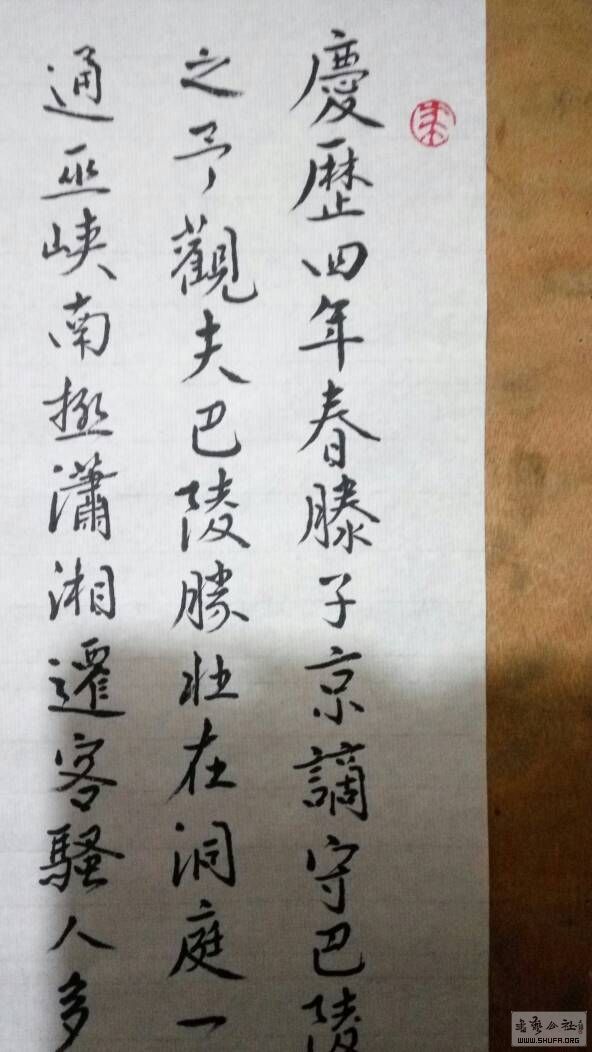 慶歷四年春滕子京謫守巴陵
之予觀夫巴陵勝壯在洞庭一
通巫峽南極瀟湘遷客騷人多
WWW.SHUFA.ORG